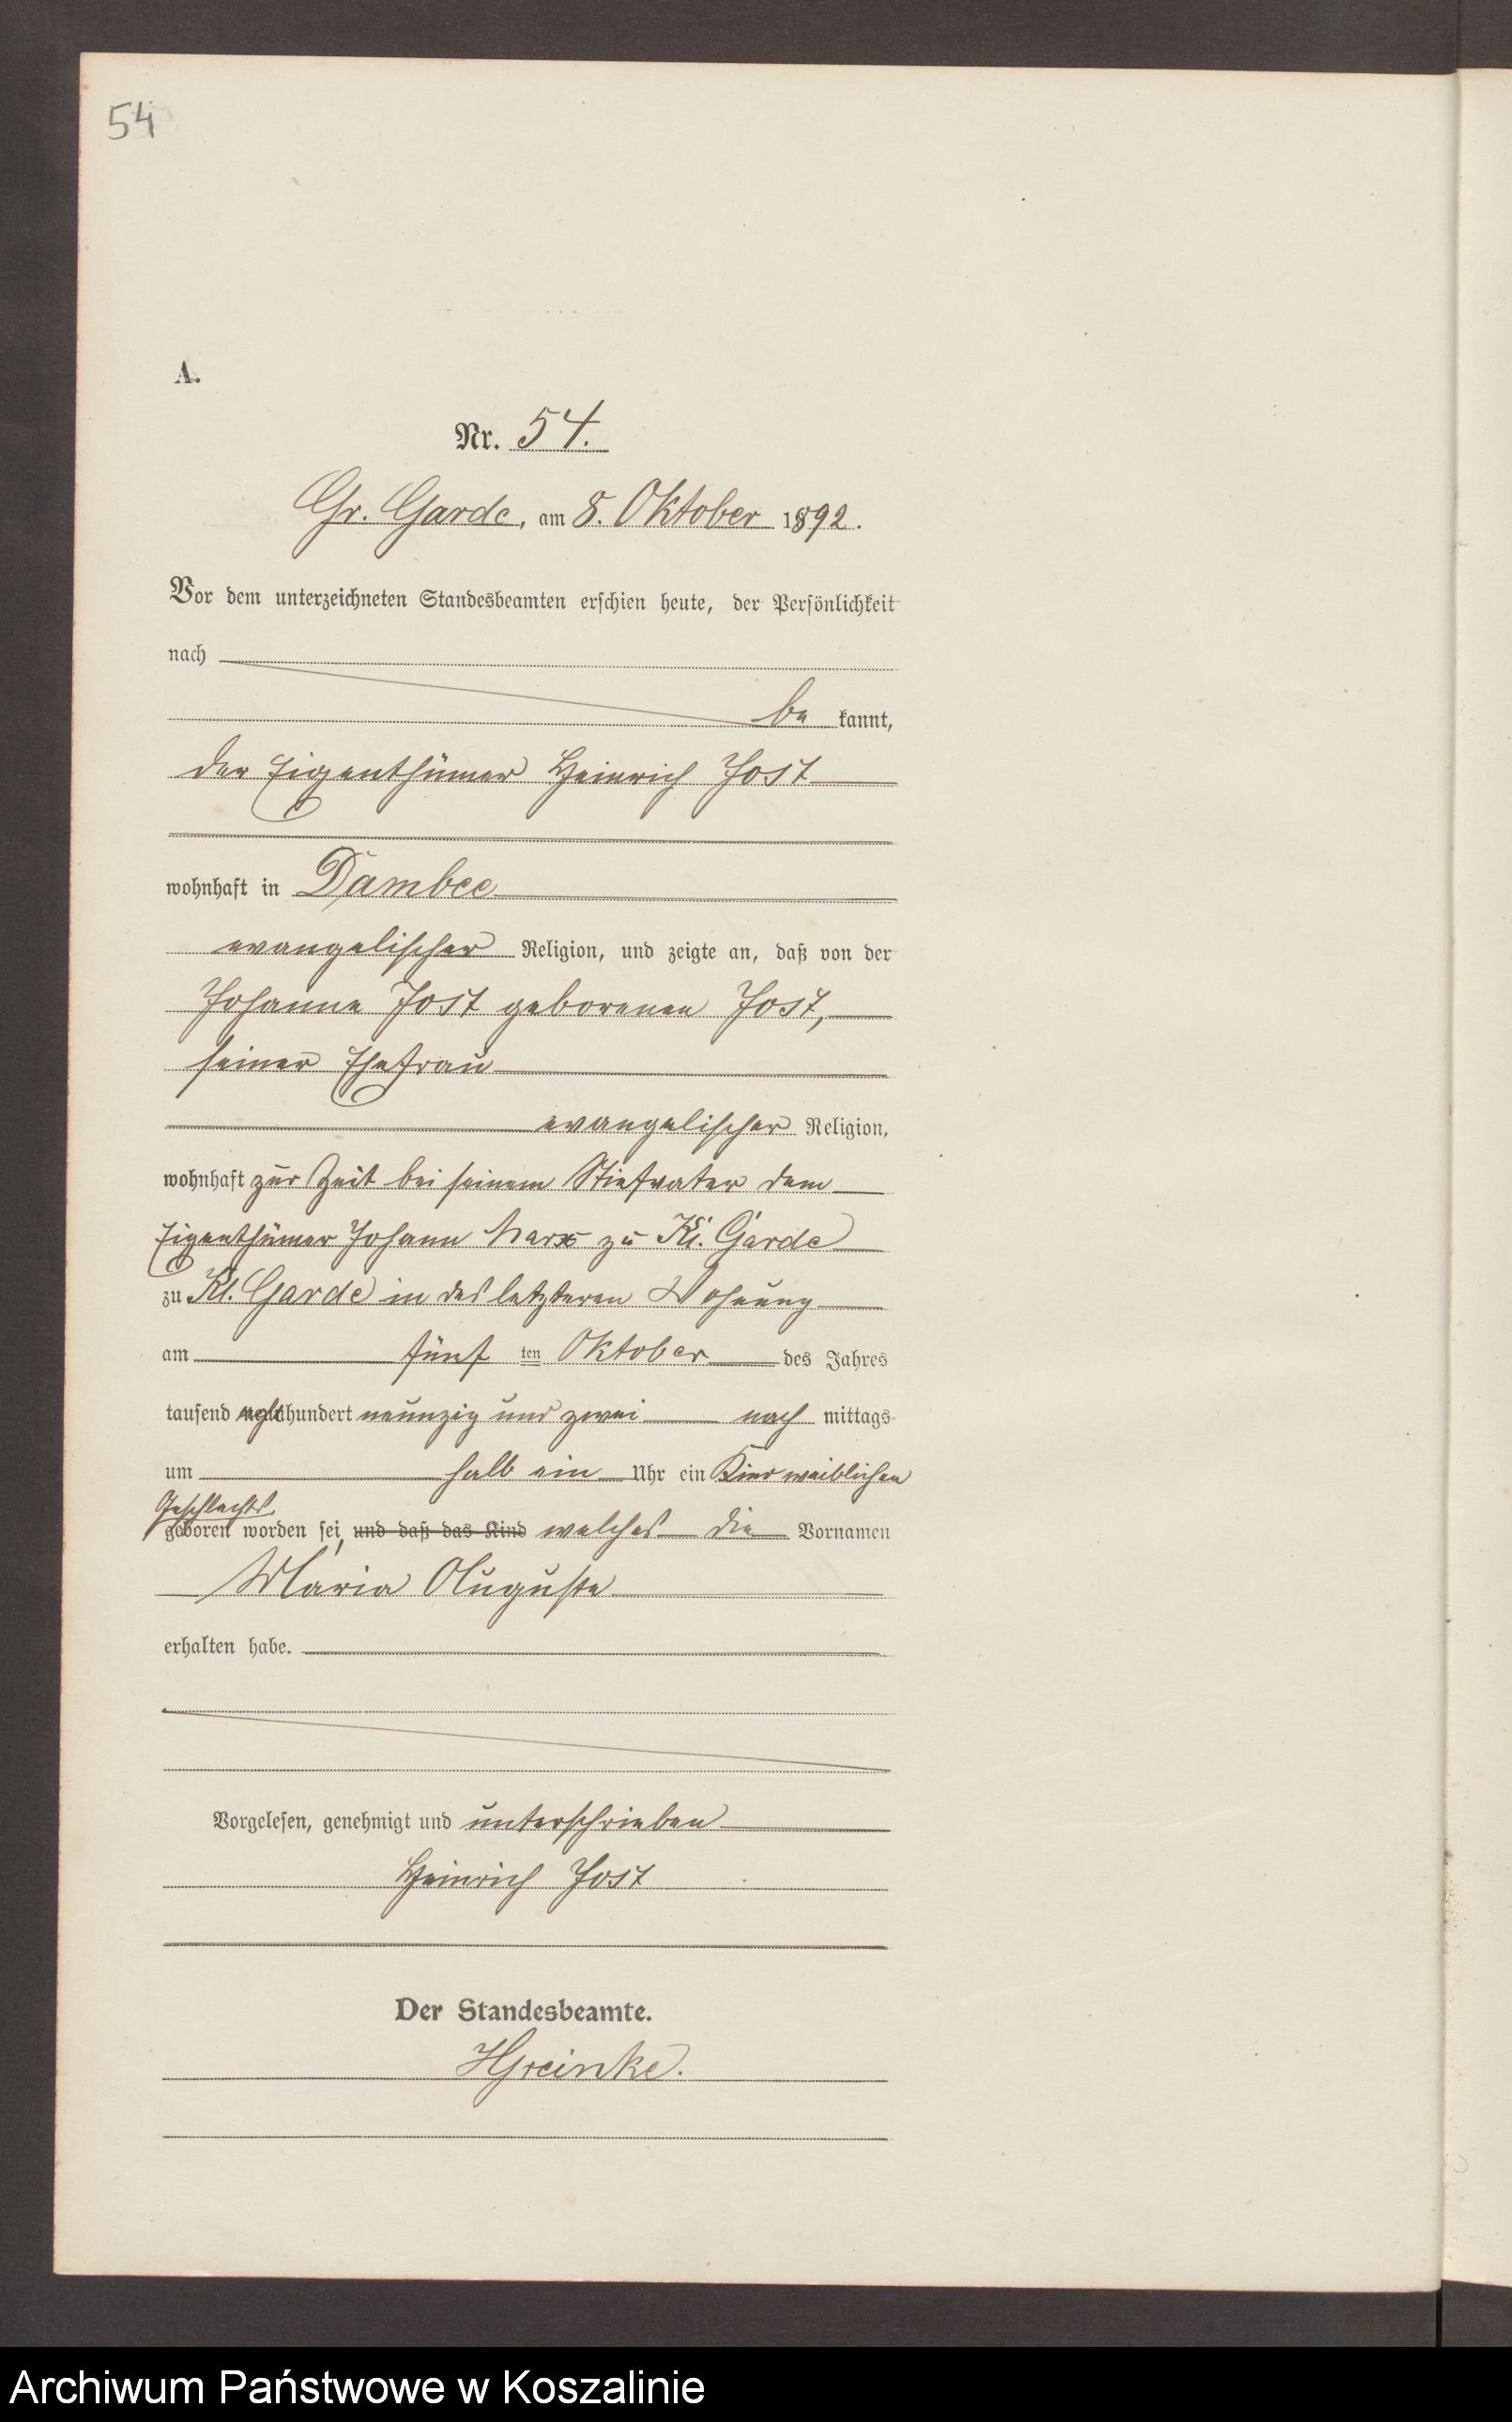 54
A.
Nr. 54.
Gr. Garde, am 8. Oktober 1892.
Vor dem unterzeichneten Standesbeamten erschien heute, der Persönlichkeit
nach
be kannt,
der Eigenthümer Heinrich Jost
wohnhaft in Dambee
evangelischer Religion, und zeigte an, daß von der
Johanne Jost geborenen Jost,
seiner Ehefrau
evangelischer Religion,
wohnhaft zur Zeit bei seinem Stiefvater dem
Eigenthümer Johann Marx zu Kl. Garde
zu Kl. Garde in des letzteren Wohnung
am fünf ten Oktober des Jahres
tausend achthundert neunzig und zwei nach mittags
um halb ein Uhr ein Kind weiblichen
Geschlechts
geboren worden sei, und daß das Kind welches die Vornamen
Maria Auguste
erhalten habe.
Vorgelesen, genehmigt und unterschrieben
Heinrich Jost
Der Standesbeamte.
Archiwum Państwowe w Koszalinie